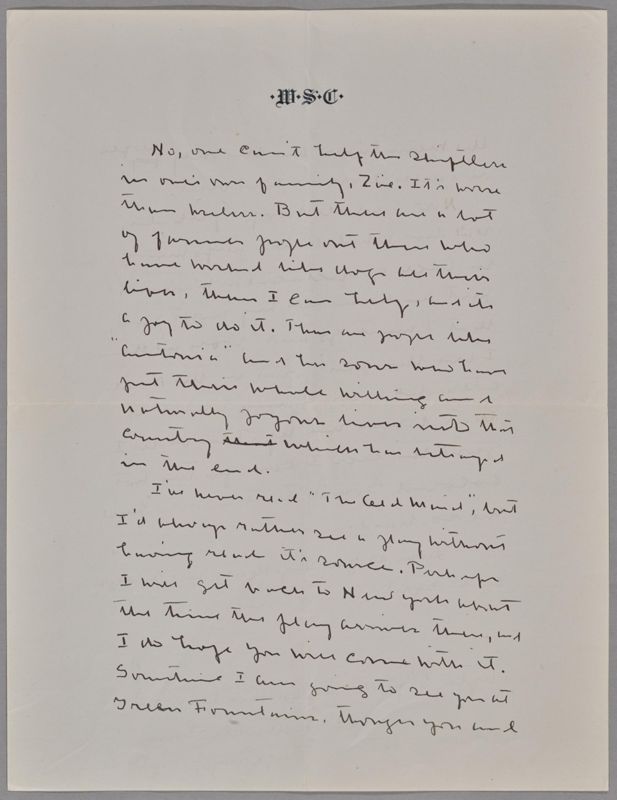 W·S·C
No, one can't help the shiftless
in one's own family, Zoë. It's worse
than useless. But there are a lot
of farmer people out there who
have worked like dogs all their
lives, them I can help, and it's
a joy to do it. There are people like
"Antonia" and her sons who have
put their whole willing and
naturally joyous lives into that
country that which has betrayed
in the end.
I've never read "The Old Maid", but
I'd always rather see a play without
having read it's source. Perhaps
I will get back to New York about
the time the play arrives there, and
I do hope you will come with it.
Sometime I am going to see you at
Green Fountains, though you and